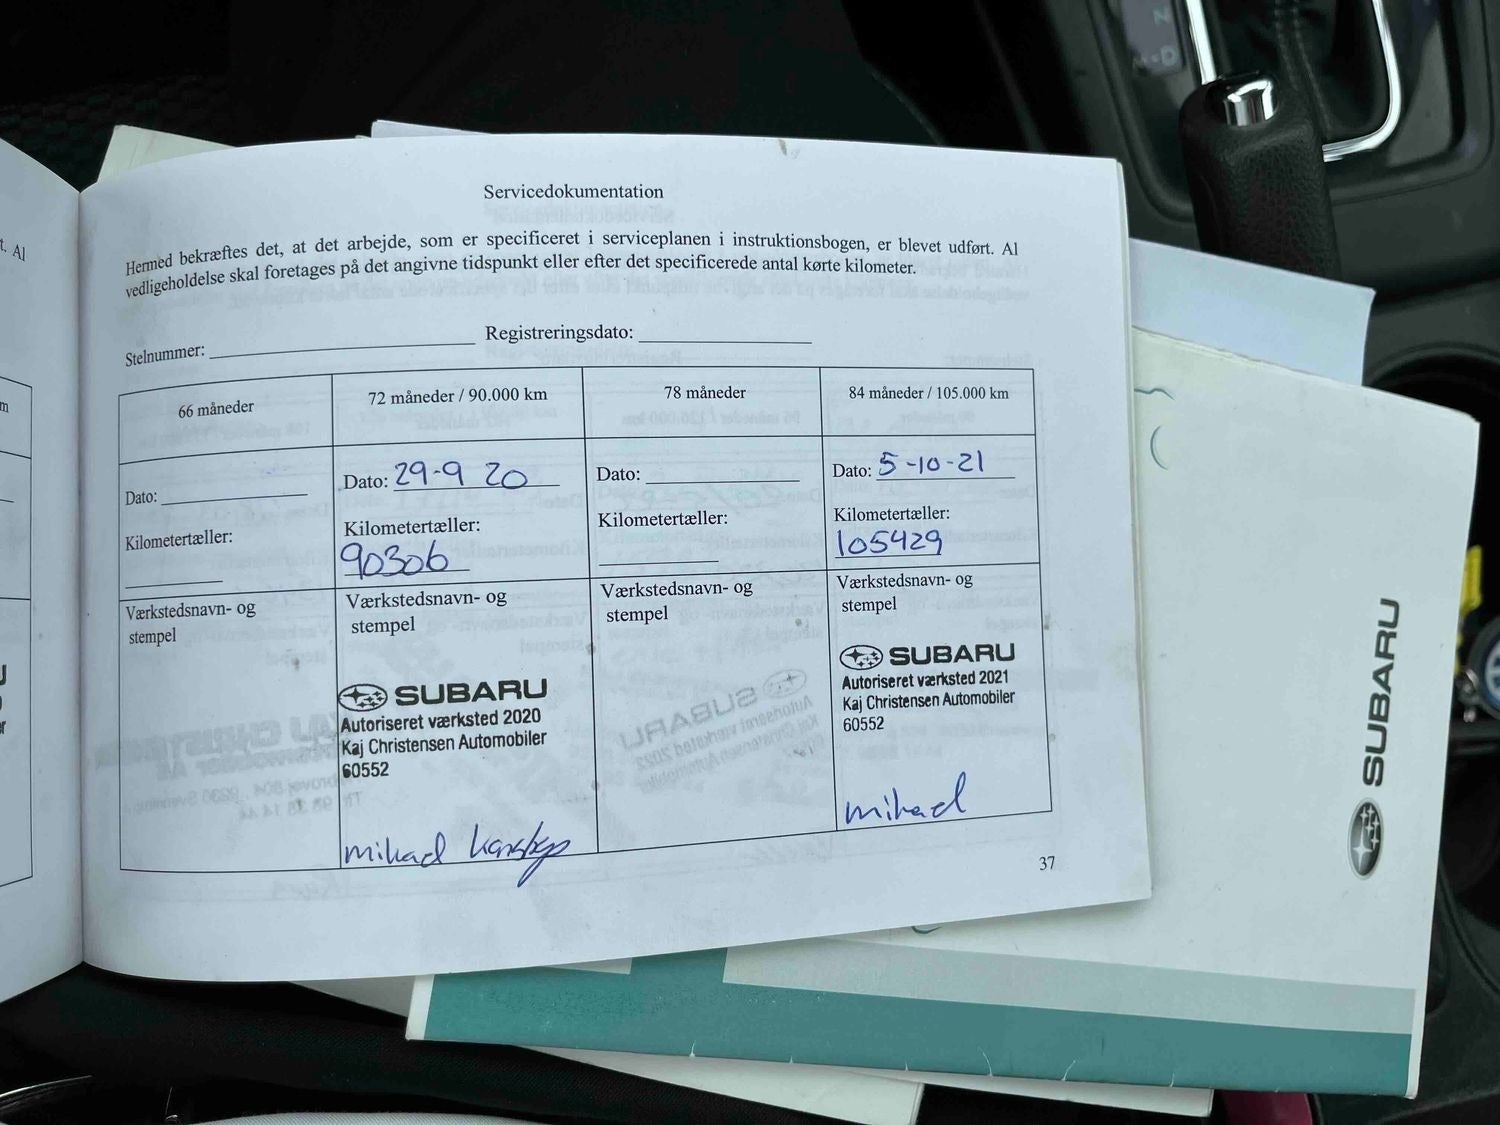 t. Al
Servicedokumentation
Hermed bekræftes det, at det arbejde, som er specificeret i serviceplanen i instruktionsbogen, er blevet udført. Al
vedligeholdelse skal foretages på det angivne tidspunkt eller efter det specificerede antal kørte kilometer.
Stelnummer: Registreringsdato:
66 måneder
72 måneder / 90.000 km
78 måneder
84 måneder / 105.000 km
Dato:
Dato: 29-9 20
Dato:
Dato: 5-10-21
Kilometertæller:
Kilometertæller:
90306
Kilometertæller:
Kilometertæller:
105429
Værkstedsnavn- og
stempel
Værkstedsnavn- og
stempel
SUBARU
Autoriseret værksted 2020
Kaj Christensen Automobiler
60552
mikael
Værkstedsnavn- og
stempel
Værkstedsnavn- og
stempel
SUBARU
Autoriseret værksted 2021
Kaj Christensen Automobiler
60552
mikael
37
SUBARU
N
D